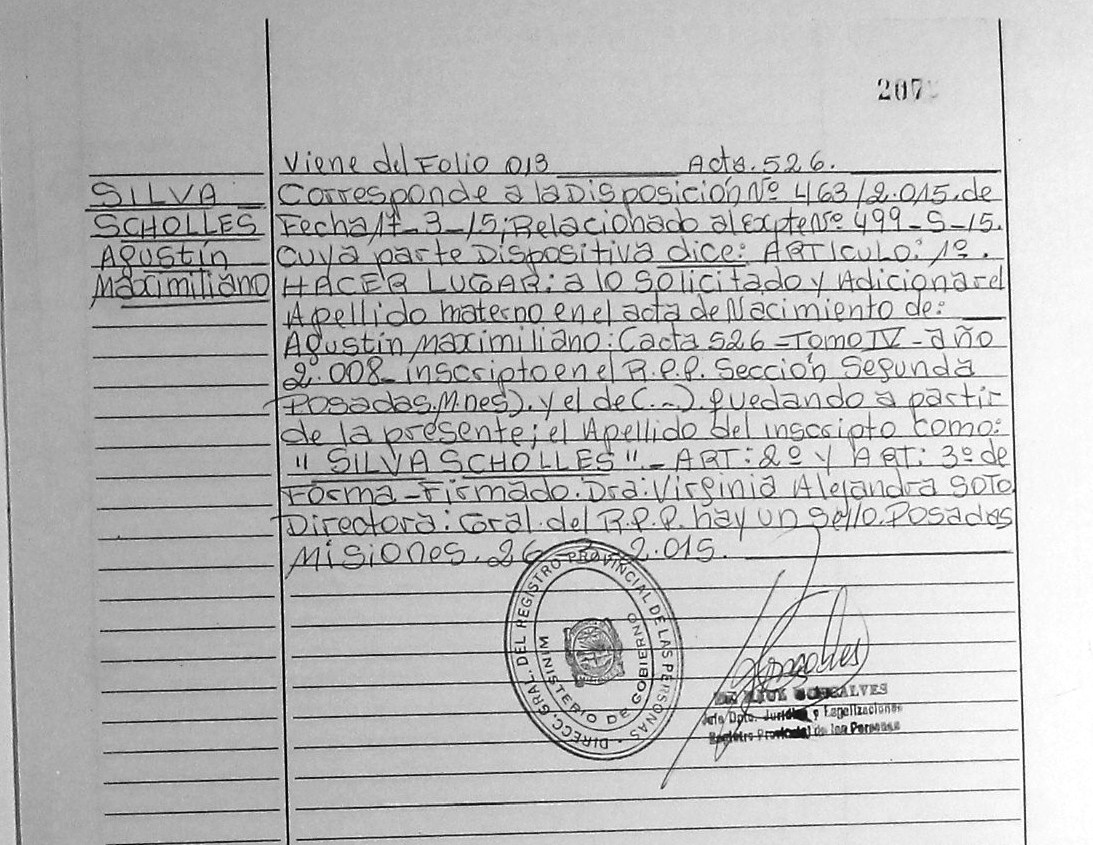 207
Viene del Folio 013 Acta. 526.
SILVA
SCHOLLES
Agustín
Maximiliano
Corresponde a la Disposición Nº 463/2.015. de
Fecha 17-3-15; Relacionado al Expte Nº 499-S-15.
cuya parte Dispositiva dice: ARTICULO: 1º.
HACER LUGAR: a lo Solicitado y Adicionar el
Apellido materno en el acta de Nacimiento de:
Agustín Maximiliano: (acta 526 - Tomo IV - año
2.008 - inscripto en el R.P.P. Sección Segunda
Posadas, M.nes). y el de (...) quedando a partir
de la presente; el Apellido del inscripto como:
"SILVA SCHOLLES". - ART: 2º y ART: 3º de
Forma - Firmado. Dra: Virginia Alejandra SOTO
Directora: Gral. del R.P.P. hay un Sello. Posadas
Misiones. 26 2.015.
DIRECC. GRAL. DEL REGISTRO PROVINCIAL DE LAS PERSONAS
MINISTERIO DE GOBIERNO
GONSALVES
Jefe Dpto. Jurídica y Legalizaciones
Registro Provincial de las Personas